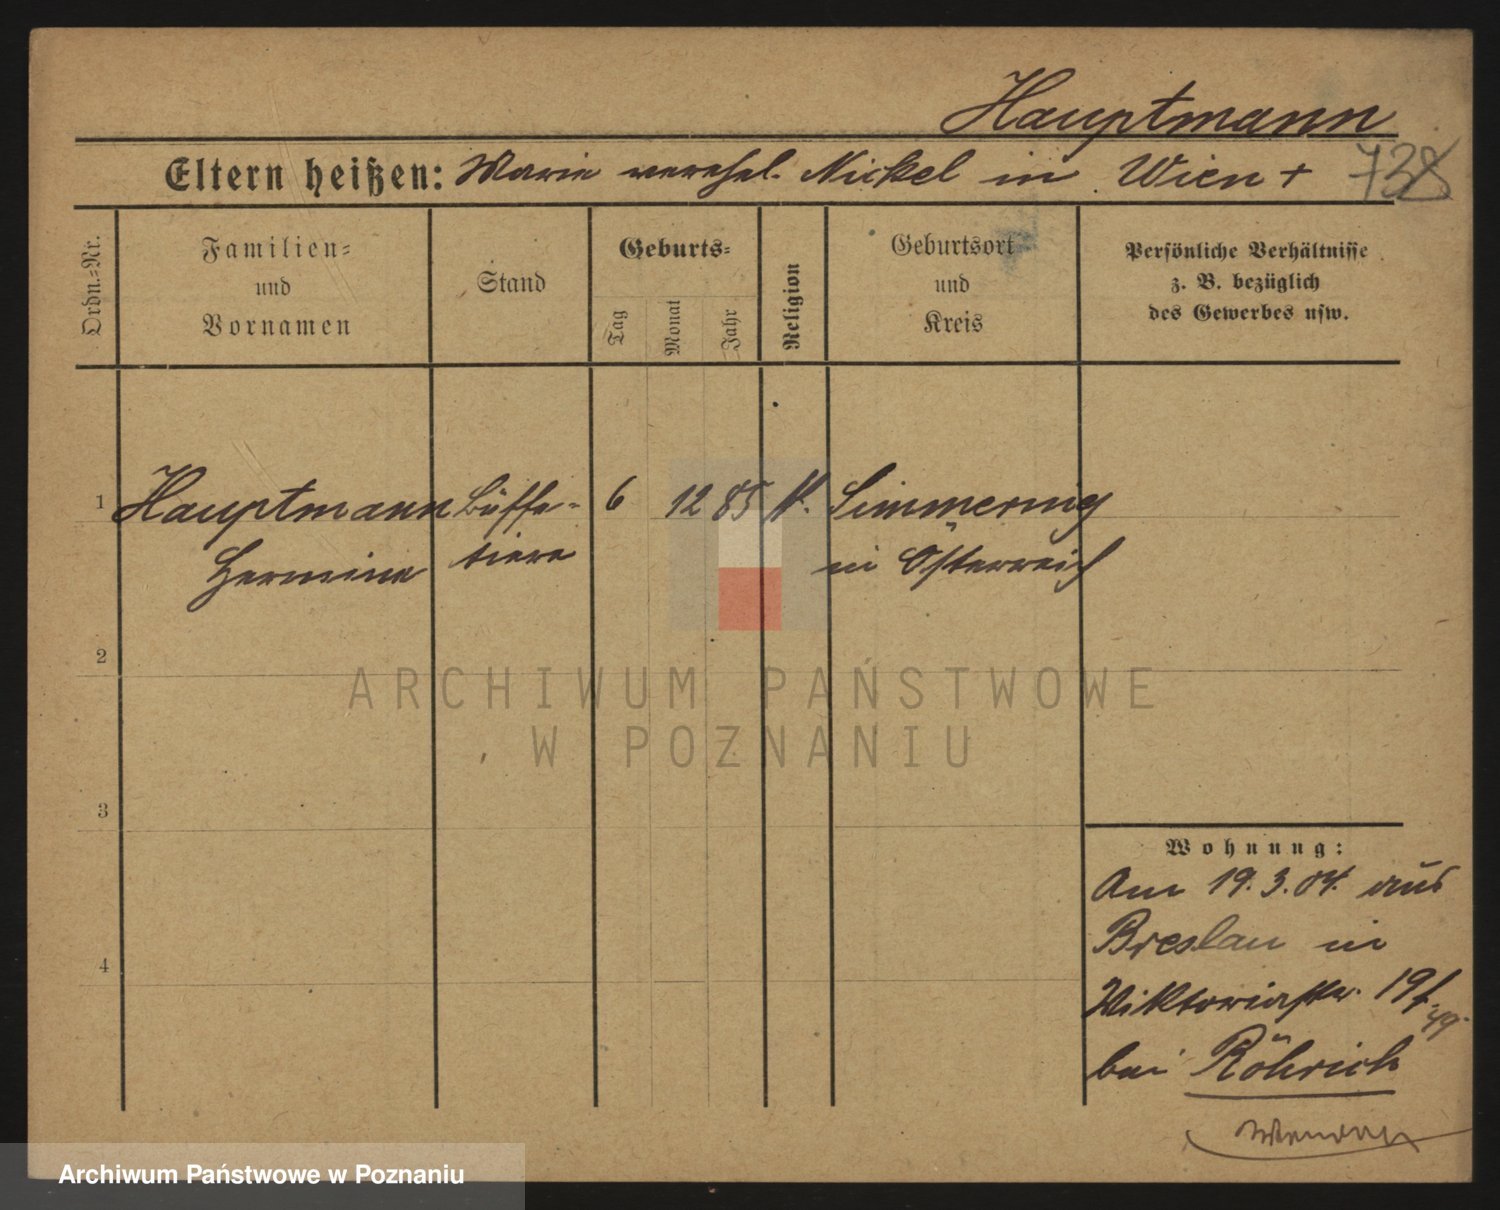 Hauptmann
Eltern heißen: Marie verehel. Nickel in Wien +
738
Ordn.=Nr.
Familien= und Vornamen
Stand
Geburts=
Tag
Monat
Jahr
Religion
Geburtsort und Kreis
Persönliche Verhältnisse z. B. bezüglich des Gewerbes usw.
1 Hauptmann Büffe- 6 12 85 k. Simmering
Hermine tiere in Österreich
2
3
4
Wohnung:
Am 19.3.04. aus
Breslau in
Viktoriastr. 19
bei Röhrich
ARCHIWUM PAŃSTWOWE
W POZNANIU
Archiwum Państwowe w Poznaniu